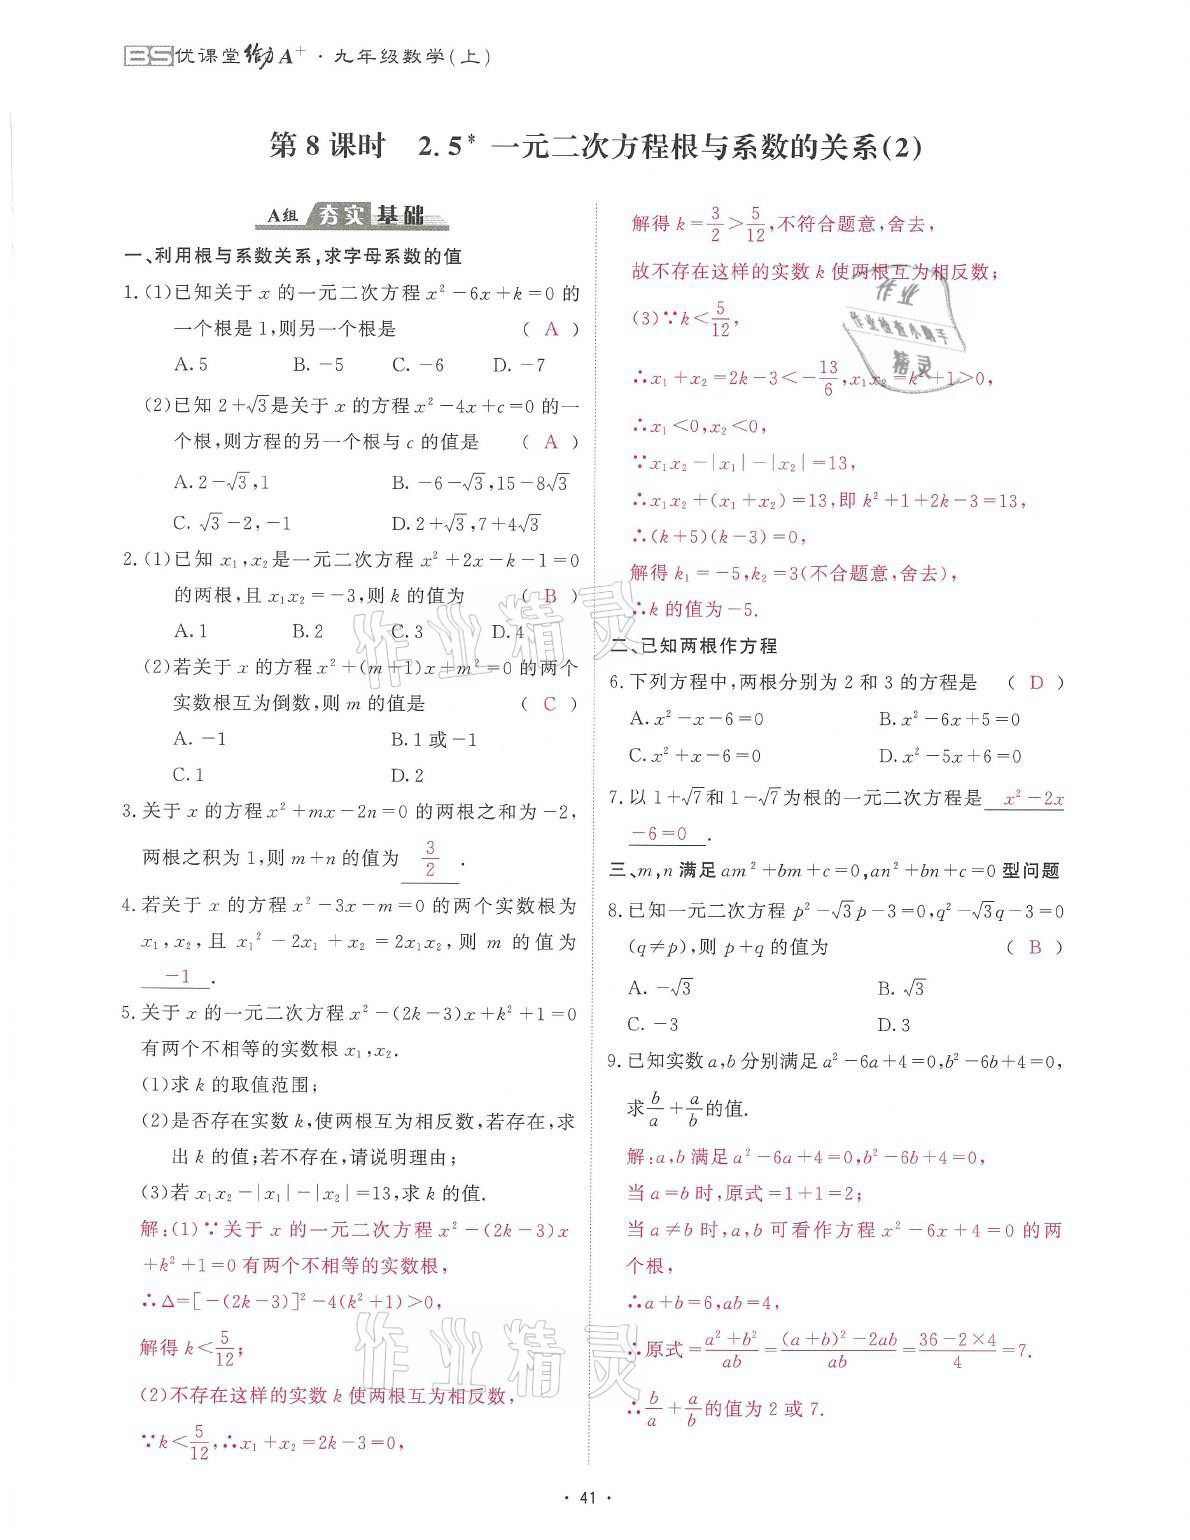 BS优课堂给力A⁺·九年级数学(上)
第8课时 2.5* 一元二次方程根与系数的关系(2)
A组 夯实 基础
一、利用根与系数关系,求字母系数的值
1.(1)已知关于 x 的一元二次方程 x²－6x＋k＝0 的
一个根是1,则另一个根是 ( A )
A.5 B.－5 C.－6 D.－7
(2)已知 2＋√3是关于 x 的方程 x²－4x＋c＝0 的一
个根,则方程的另一个根与 c 的值是 ( A )
A.2－√3,1 B.－6－√3,15－8√3
C.√3－2,－1 D.2＋√3,7＋4√3
2.(1)已知 x₁,x₂是一元二次方程 x²＋2x－k－1＝0
的两根,且 x₁x₂＝－3,则 k 的值为 ( B )
A.1 B.2 C.3 D.4
(2)若关于 x 的方程 x²＋(m＋1)x＋m²＝0 的两个
实数根互为倒数,则 m 的值是 ( C )
A.－1 B.1或－1
C.1 D.2
3.关于 x 的方程 x²＋mx－2n＝0 的两根之和为－2,
两根之积为1,则 m＋n 的值为 3/2 .
4.若关于 x 的方程 x²－3x－m＝0 的两个实数根为
x₁,x₂,且 x₁²－2x₁＋x₂＝2x₁x₂,则 m 的值为
－1 .
5.关于 x 的一元二次方程 x²－(2k－3)x＋k²＋1＝0
有两个不相等的实数根 x₁,x₂.
(1)求 k 的取值范围;
(2)是否存在实数 k,使两根互为相反数,若存在,求
出 k 的值;若不存在,请说明理由;
(3)若 x₁x₂－|x₁|－|x₂|＝13,求 k 的值.
解:(1)∵关于 x 的一元二次方程 x²－(2k－3)x
＋k²＋1＝0 有两个不相等的实数根,
∴Δ＝[－(2k－3)]²－4(k²＋1)>0,
解得 k<5/12;
(2)不存在这样的实数 k 使两根互为相反数,
∵k<5/12,∴x₁＋x₂＝2k－3＝0,
解得 k＝3/2>5/12,不符合题意,舍去,
故不存在这样的实数 k 使两根互为相反数;
(3)∵k<5/12,
∴x₁＋x₂＝2k－3<－13/6,x₁x₂＝k²＋1>0,
∴x₁<0,x₂<0,
∵x₁x₂－|x₁|－|x₂|＝13,
∴x₁x₂＋(x₁＋x₂)＝13,即 k²＋1＋2k－3＝13,
∴(k＋5)(k－3)＝0,
解得 k₁＝－5,k₂＝3(不合题意,舍去),
∴k 的值为－5.
二、已知两根作方程
6.下列方程中,两根分别为2和3的方程是 ( D )
A.x²－x－6＝0 B.x²－6x＋5＝0
C.x²＋x－6＝0 D.x²－5x＋6＝0
7.以 1＋√7和 1－√7为根的一元二次方程是 x²－2x
－6＝0 .
三、m,n 满足 am²＋bm＋c＝0,an²＋bn＋c＝0 型问题
8.已知一元二次方程 p²－√3p－3＝0,q²－√3q－3＝0
(q≠p),则 p＋q 的值为 ( B )
A.－√3 B.√3
C.－3 D.3
9.已知实数 a,b 分别满足 a²－6a＋4＝0,b²－6b＋4＝0,
求 b/a＋a/b 的值.
解:a,b 满足 a²－6a＋4＝0,b²－6b＋4＝0,
当 a＝b 时,原式＝1＋1＝2;
当 a≠b 时,a,b 可看作方程 x²－6x＋4＝0 的两
个根,
∴a＋b＝6,ab＝4,
∴原式＝(a²＋b²)/ab＝((a＋b)²－2ab)/ab＝(36－2×4)/4＝7.
∴b/a＋a/b 的值为2或7.
作业
作业检查小助手
精灵
作业精灵
作业精灵
· 41 ·